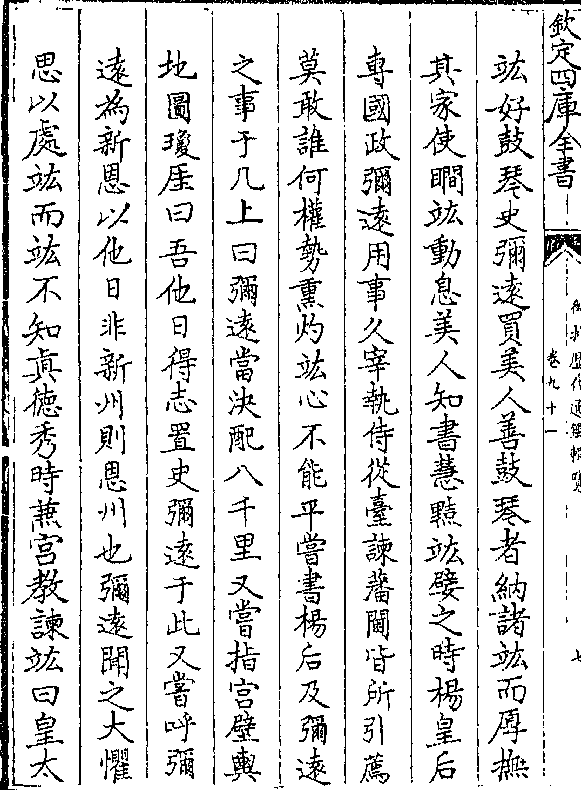 欽定四庫全書
御批歷代通鑑輯覽
卷九十一
七
竑好鼓琴史彌遠買美人善鼓琴者納諸竑而厚撫
其家使瞷竑動息美人知書慧黠竑嬖之時楊皇后
專國政彌遠用事久宰執侍從臺諫藩閫皆所引薦
莫敢誰何權勢熏灼竑心不能平嘗書楊后及彌遠
之事于几上曰彌遠當決配八千里又嘗指宫壁輿
地圖瓊厓曰吾他日得志置史彌遠于此又嘗呼彌
遠為新恩以他日非新州則恩州也彌遠聞之大懼
思以處竑而竑不知真德秀時兼宫教諫竑曰皇太